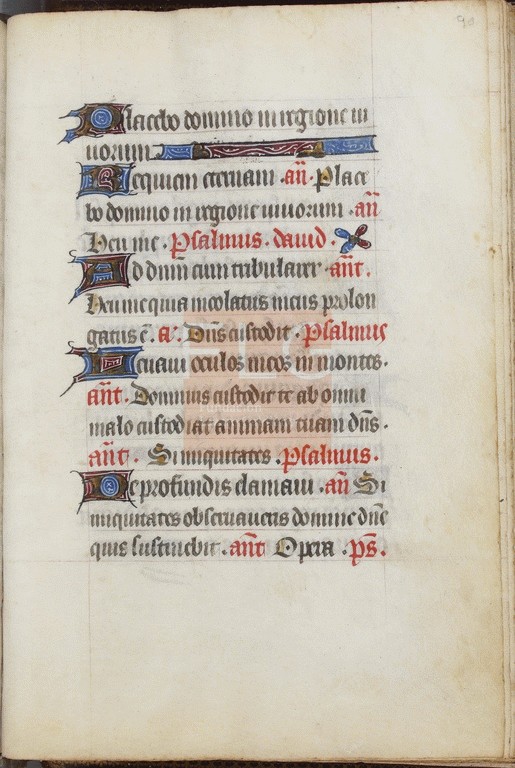 90
Placebo domino in regione ui
uorum.
Requiem eternam . an̄ . Place
bo domino in regione uiuorum . an̄
Heu me . Psalmus . dauid .
Ad dn̄m cum tribularer . ant̄ .
Heu me quia incolatus meus prolon
gatus ē . a . Dn̄s custodit . Psalmus
Leuaui oculos meos in montes .
ant̄ . Dominus custodit te ab omni
malo custodiat animam tuam dn̄s .
ant̄ . Si iniquitates . Psalmus .
De profundis clamaui . an̄ Si
iniquitates obseruaueris domine dn̄e
quis sustinebit . ant̄ Opera . ps̄ .